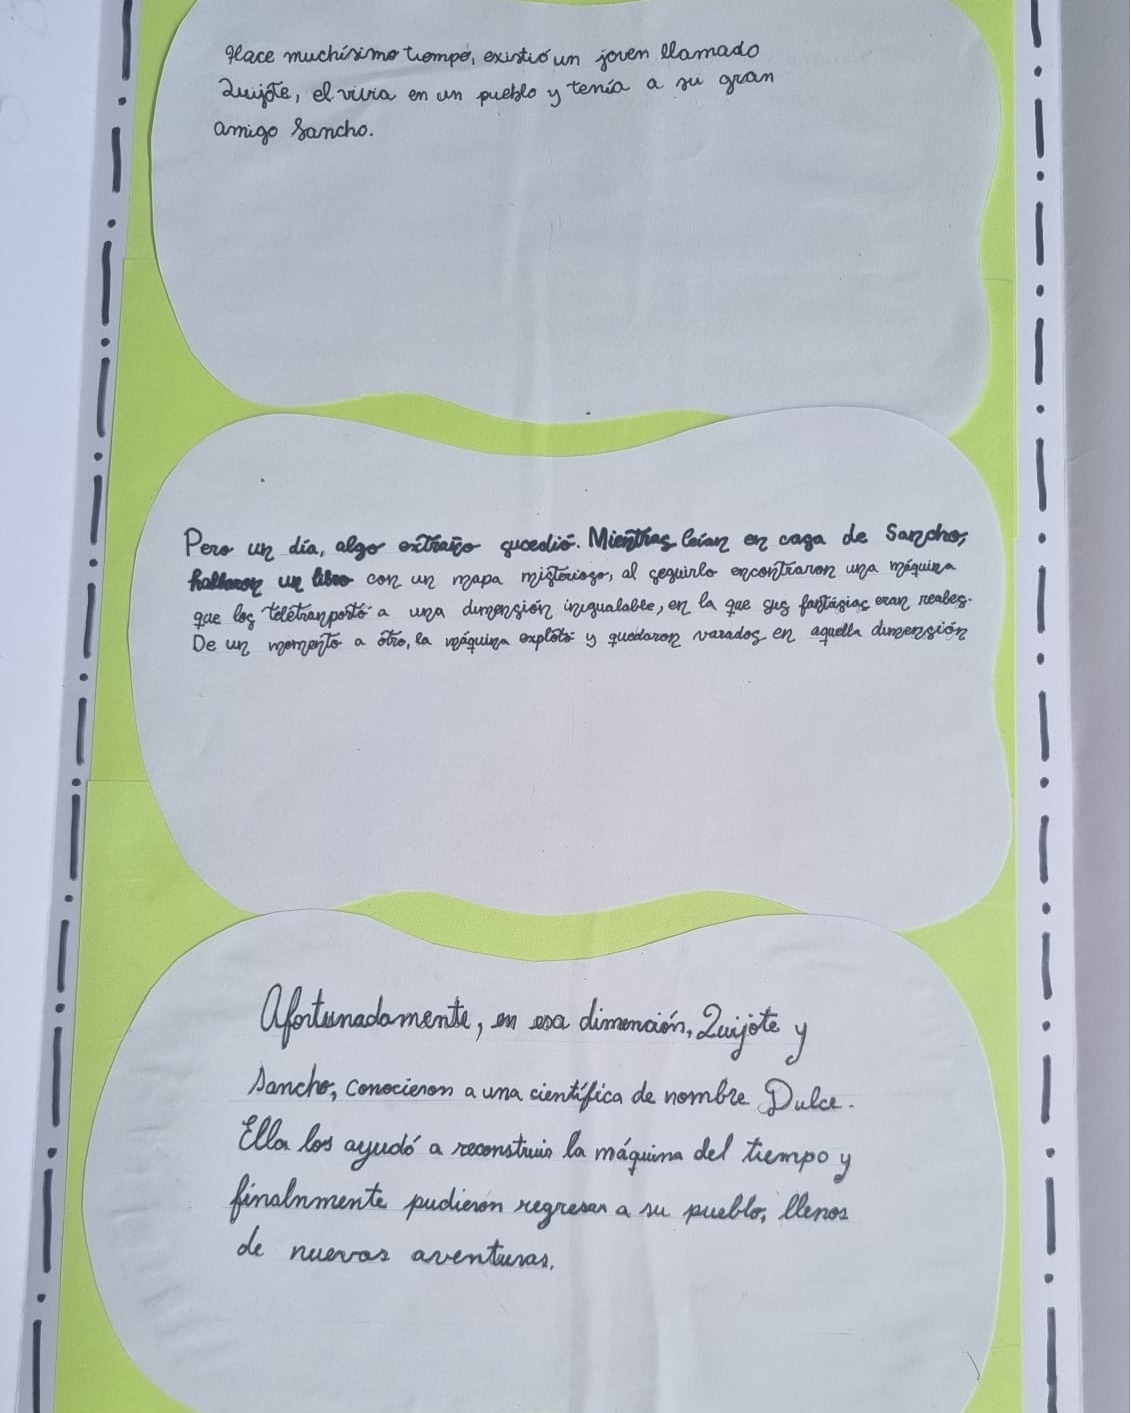 Hace muchísimo tiempo, existió un joven llamado
Quijote, el vivia en un pueblo y tenía a su gran
amigo Sancho.
Pero un día, algo extraño sucedió. Mientras leían en casa de Sancho,
hallaron un libro con un mapa misterioso, al seguirlo encontraron una máquina
que los teletranportó a una dimensión inigualable, en la que sus fantásias eran reales.
De un momento a otro, la máquina explotó y quedaron varados en aquella dimensión
Afortunadamente, en esa dimención, Quijote y
Sancho, conocieron a una científica de nombre Dulce.
Ella los ayudó a reconstruir la máquina del tiempo y
finalnmente pudieron regresar a su pueblo, llenos
de nuevas aventuras.